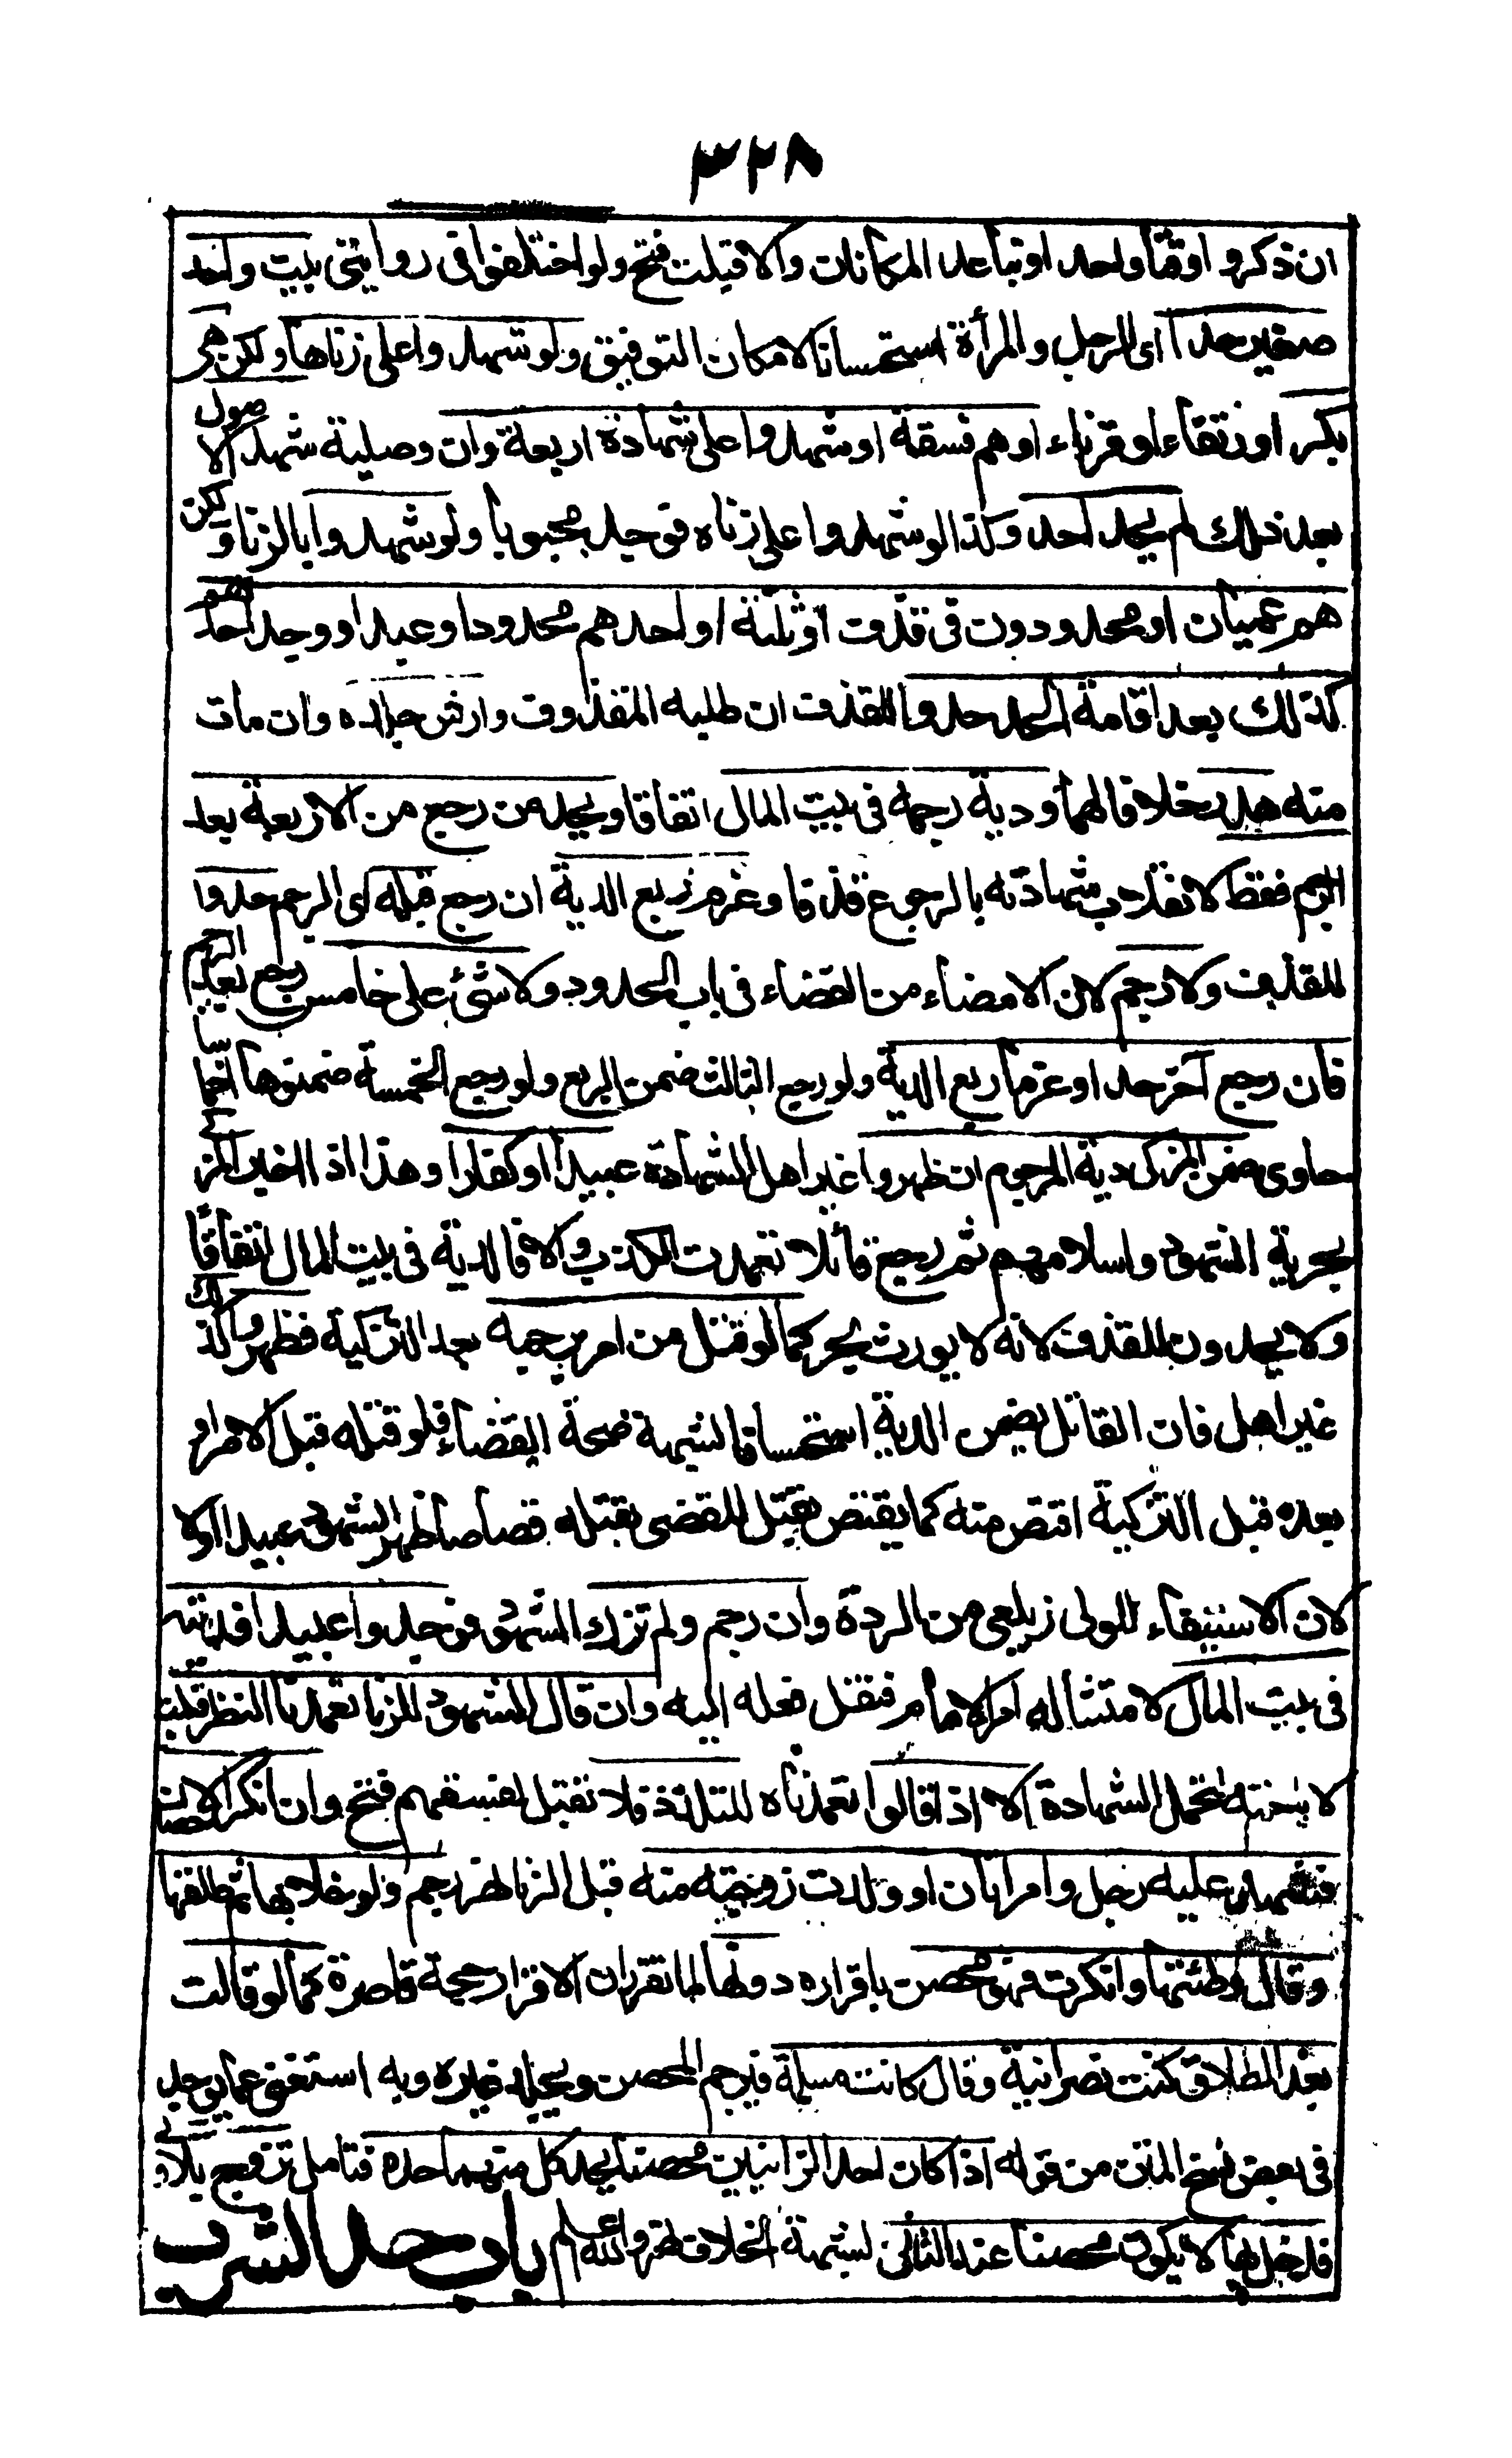 ٣٢٨
ان ذكروا وقتا واحدا وتباعد المكانان والا قبلت فتح ولو اختلفوا في روايتي بيت واحد
صغير حدا اى الرجل والمرأة استحسانا لامكان التوفيق ولو شهدوا على زناها ولكن هى
بكر او رتقاء او قرناء او هم فسقة او شهدوا على شهادة اربعة وان وصلية شهد الاصول
بعد ذلك لم يحد احد وكذا لو شهدوا على زناه فوجد مجبوبا ولو شهدوا بالزنا ولكن
هم عميان او محدودون في قذف او ثلثة او احدهم محدود او عبد او وجد احدهم
كذلك بعد اقامة الحد حدوا للقذف ان طلبه المقذوف وارش جلده وان مات
منه هدر خلافا لهما ودية رجمه في بيت المال اتفاقا ويحد من رجع من الاربعة بعد
الرجم فقط لانقلاب شهادته بالرجوع قذفا وغرم ربع الدية ان رجع قبله اى الرجم حدوا
للقذف ولا رجم لان الامضاء من القضاء في باب الحدود ولا شئ على خامس رجع بعد الرجم
فان رجع آخر حدا وغرما ربع الدية ولو رجع الثالث ضمن الربع ولو رجع الخمسة ضمنوها اخماسا
حاوى ضمن المزكى دية المرجوم ان ظهروا غير اهل للشهادة عبيدا او كفارا وهذا اذا اخبر المزكى
بحرية الشهود واسلامهم ثم رجع قائلا تعمدت الكذب والا فالدية في بيت المال اتفاقا
ولا يحدون للقذف لانه لا يورث بحر كما لو قتل من امر برجمه بعد التزكية فظهروا كذلك
غير اهل فان القاتل يضمن الدية استحسانا لشبهة صحة القضاء فلو قتله قبل الامر او
بعده قبل التزكية اقتص منه كما يقتص بقتل المقضى بقتله قصاصا ظهر الشهود عبيدا اولا
لان الاستيفاء للولى زيلعى من الردة وان رجم ولم تزك الشهود فوجدوا عبيدا فديته
في بيت المال لامتثاله امر الامام فنقل فعله اليه وان قال الشهود للزنا تعمدنا النظر قبلت
لاباحته لتحمل الشهادة الا اذا قالوا تعمدناه للتلذذ فلا تقبل لفسقهم فتح وان انكر الاحصان
فشهد عليه رجل وامراتان او ولدت زوجته منه قبل الزنا نهر رجم ولو خلا بها ثم طلقها
وقال وطئتها وانكرت فهو محصن باقراره دونها لما تقرر ان الاقرار حجة قاصرة كما لو قالت
بعد الطلاق كنت نصرانية وقال كانت مسلمة فيرجم المحصن ويجلد غيره وبه استغنى عما يوجد
في بعض نسخ المتن من قوله اذا كان احد الزانيين محصنا يحد كل منهما حده فتامل تزوج بلا ولى
فدخل بها لا يكون محصنا عند الثانى لشبهة الخلاف نهر والله اعلم باب حد الشرب